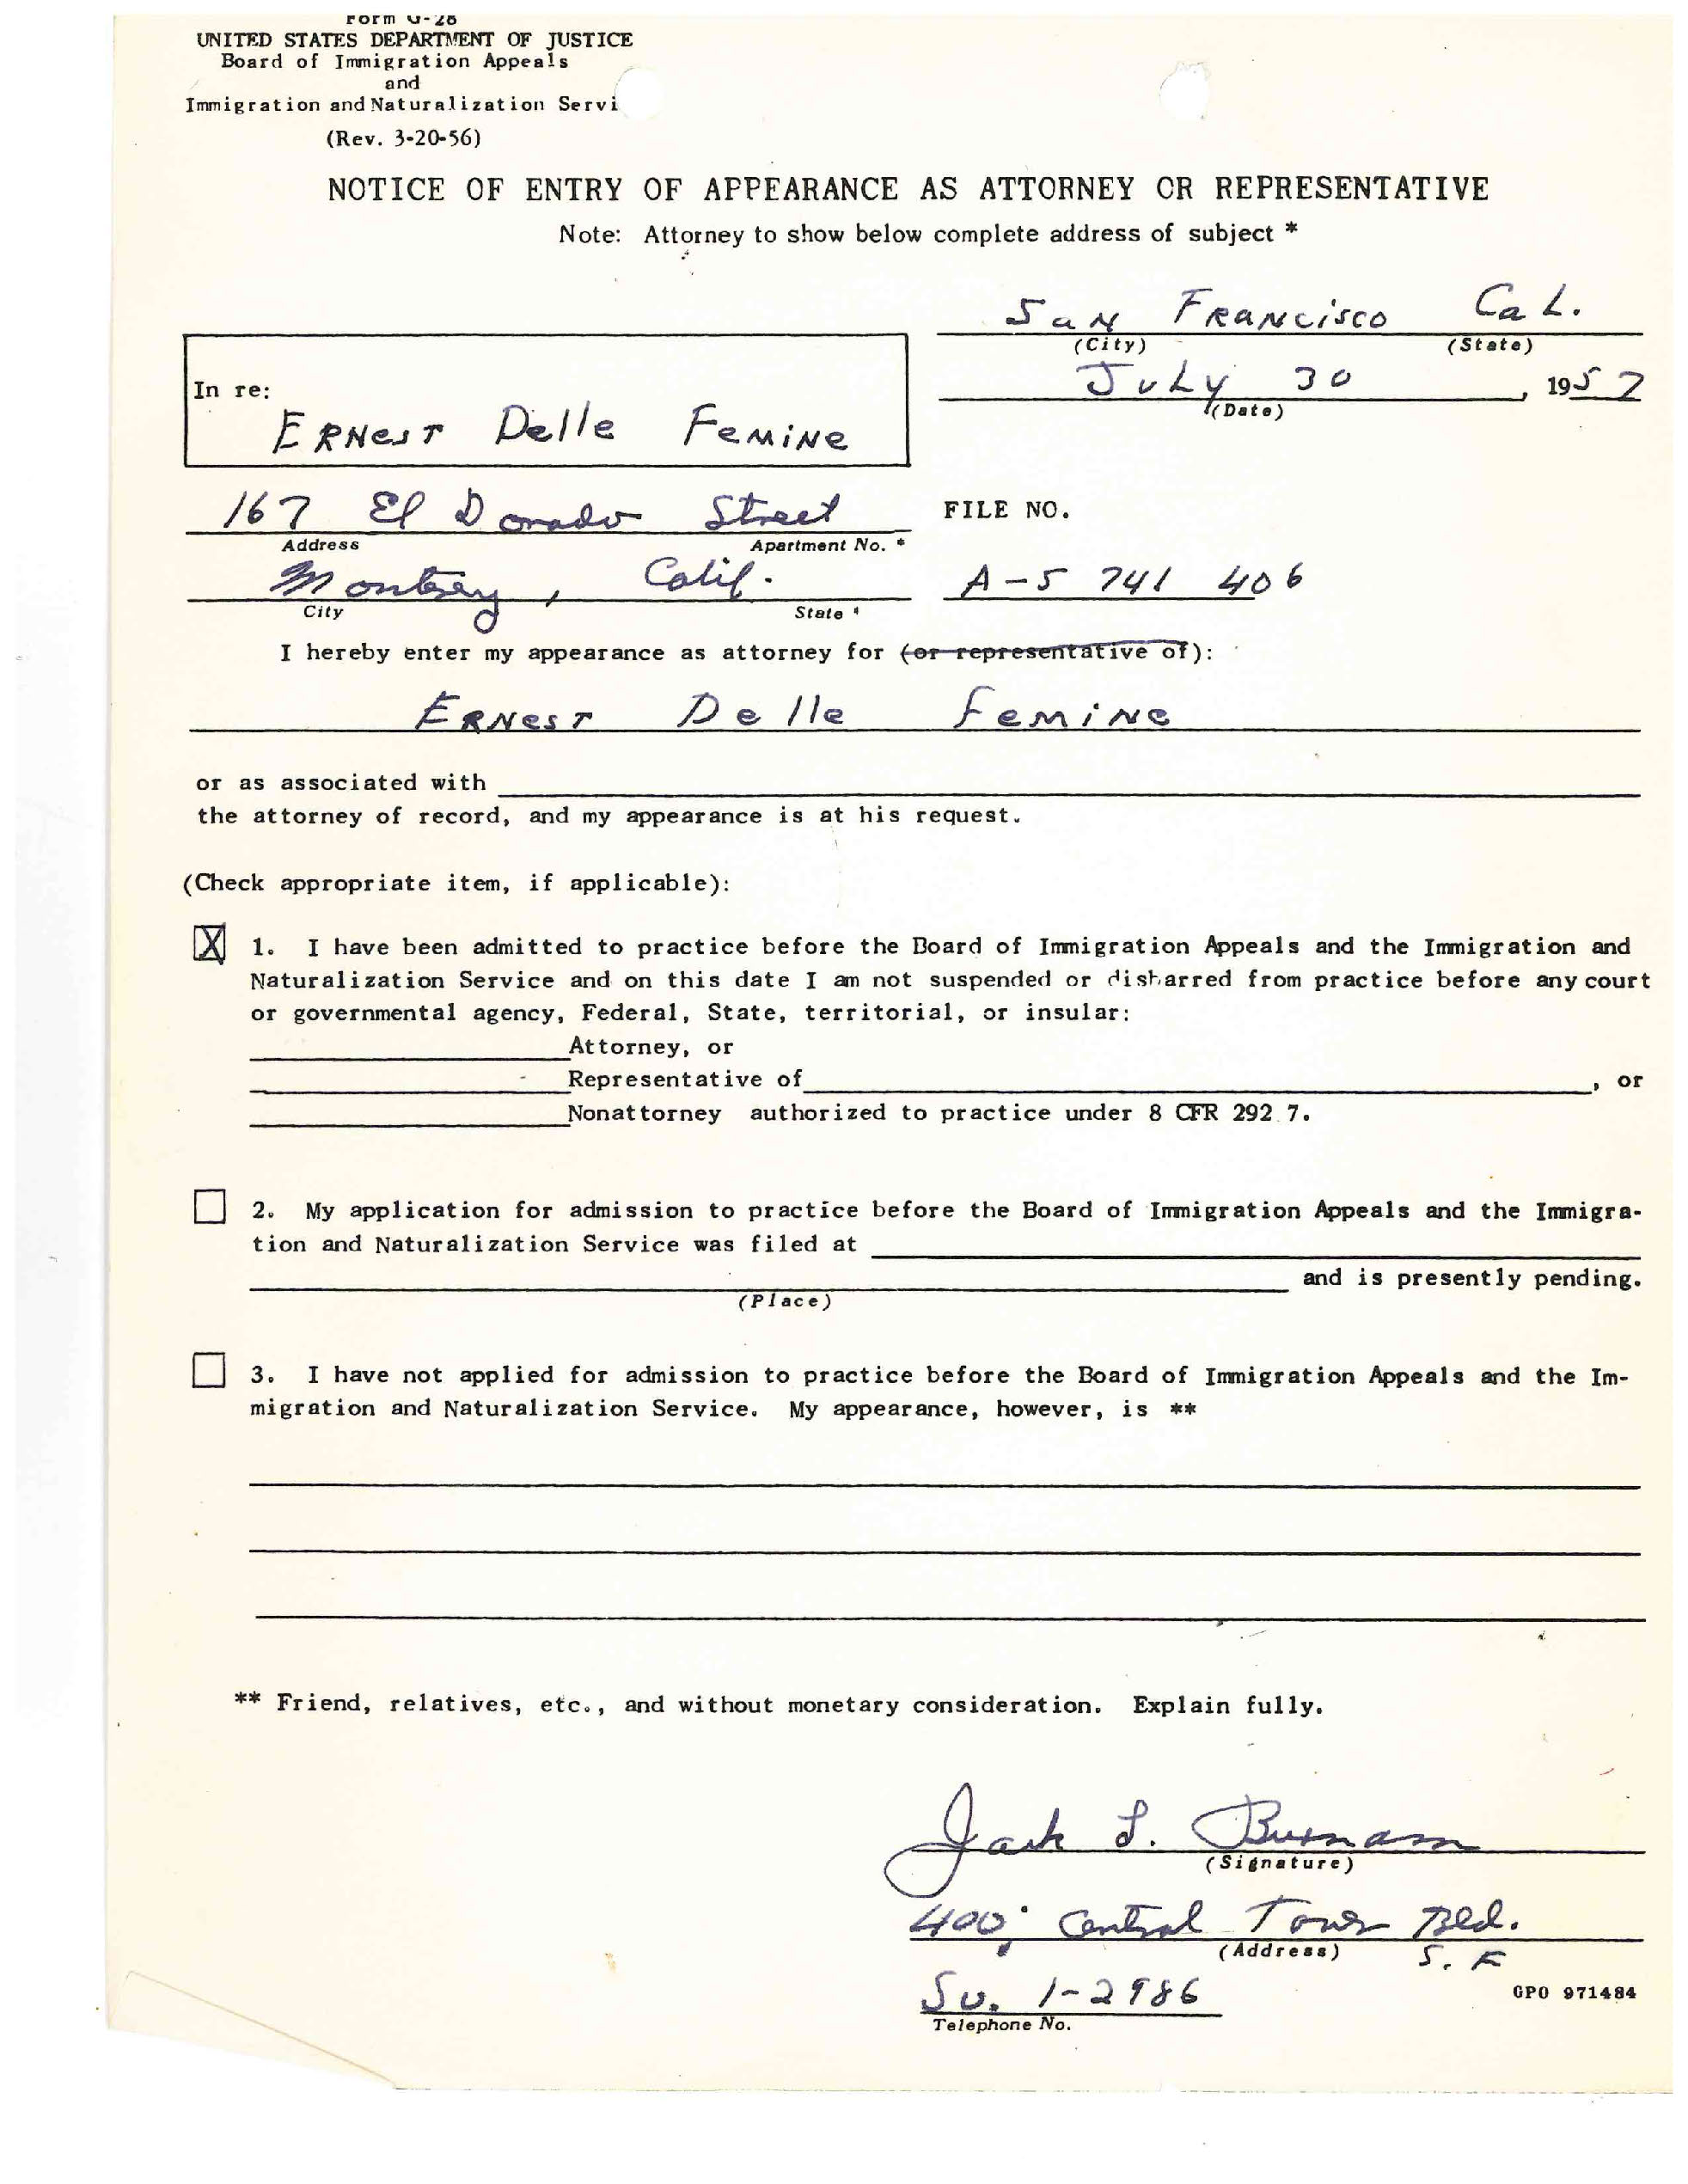 Form G-28
UNITED STATES DEPARTMENT OF JUSTICE
Board of Immigration Appeals
and
Immigration and Naturalization Servi
(Rev. 3-20-56)
NOTICE OF ENTRY OF APPEARANCE AS ATTORNEY OR REPRESENTATIVE
Note: Attorney to show below complete address of subject *
San Francisco Cal.
(City) (State)
July 30, 1957
(Date)
In re:
Ernest Delle Femine
167 El Dorado Street
Address Apartment No. *
Monterey, Calif.
City State *
FILE NO.
A-5 741 406
I hereby enter my appearance as attorney for (or representative of):
Ernest Delle Femine
or as associated with
the attorney of record, and my appearance is at his request.
(Check appropriate item, if applicable):
X 1. I have been admitted to practice before the Board of Immigration Appeals and the Immigration and
Naturalization Service and on this date I am not suspended or disbarred from practice before any court
or governmental agency, Federal, State, territorial, or insular:
Attorney, or
Representative of , or
Nonattorney authorized to practice under 8 CFR 292.7.
2. My application for admission to practice before the Board of Immigration Appeals and the Immigra-
tion and Naturalization Service was filed at
and is presently pending.
(Place)
3. I have not applied for admission to practice before the Board of Immigration Appeals and the Im-
migration and Naturalization Service. My appearance, however, is **
** Friend, relatives, etc., and without monetary consideration. Explain fully.
Jack L.
(Signature)
400 Central Tower Bld.
(Address) S. F
Su. 1-2986
Telephone No.
GPO 971484